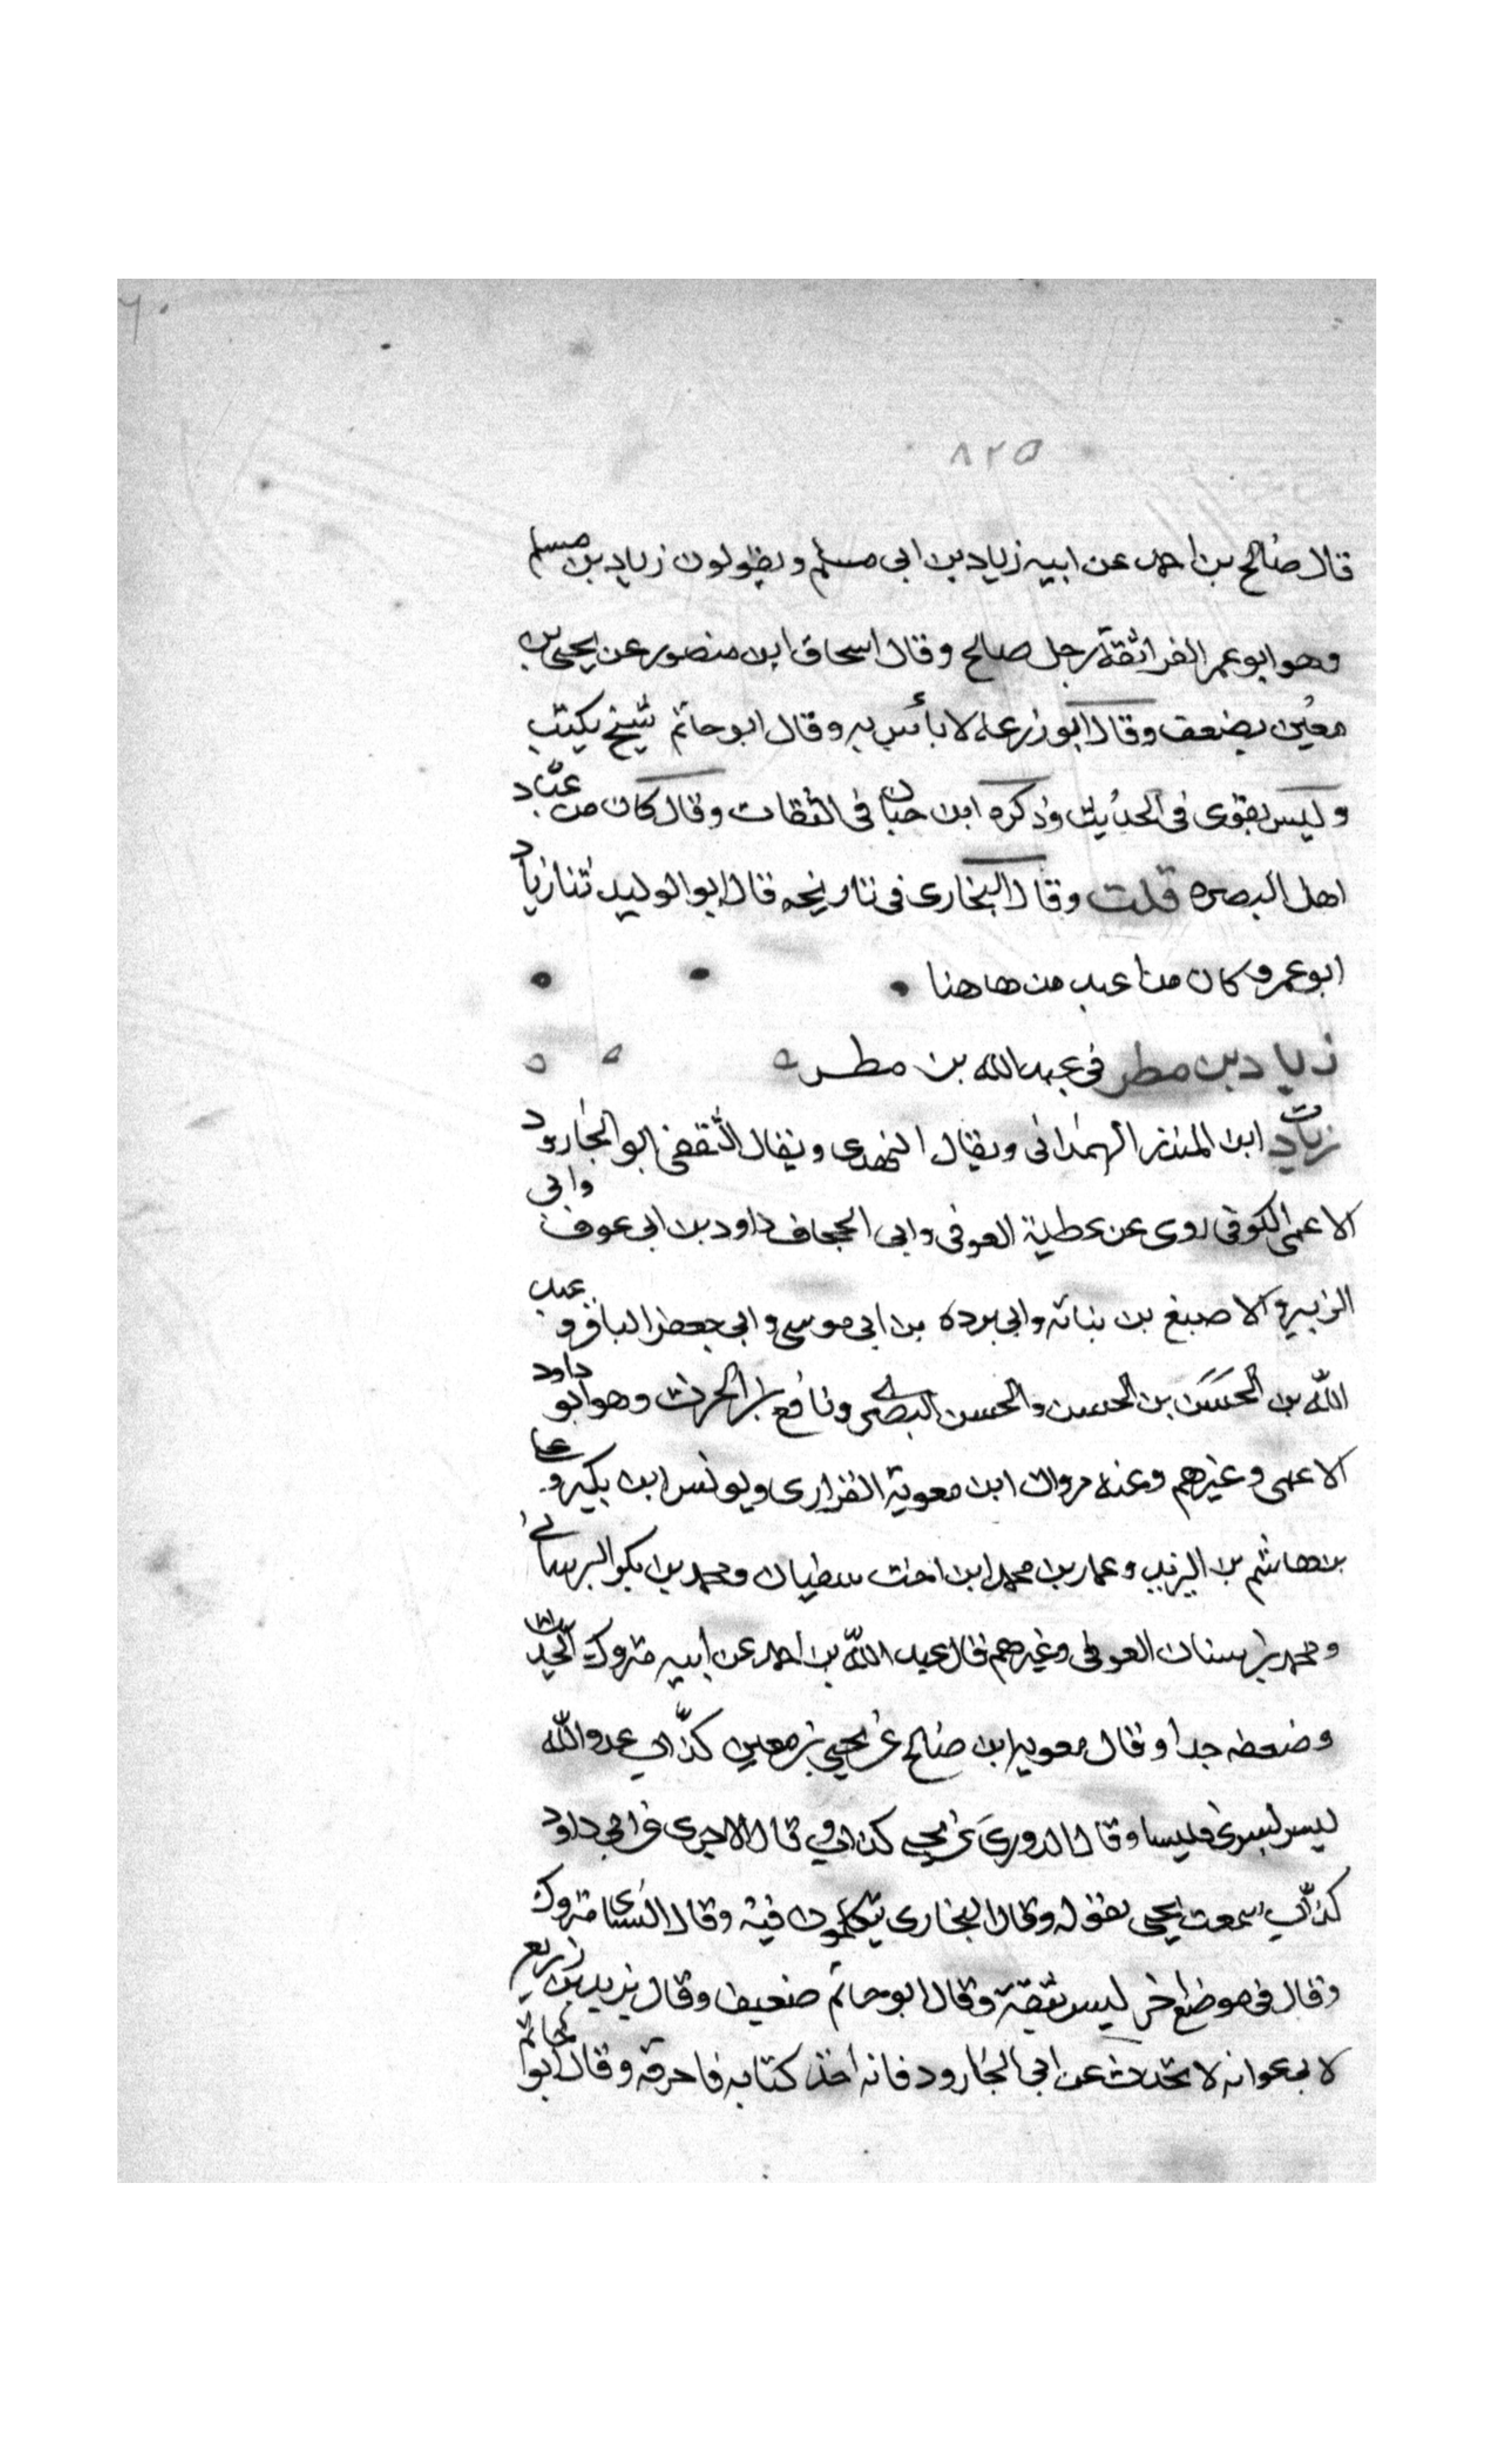 ٨٢٥
قال صالح بن احمد عن ابيه زياد بن ابى مسلم ويقولون زياد بن مسلم
وهو ابو عمر الفرا ثقة رجل صالح وقال اسحاق ابن منصور عن يحيى بن
معين يضعف وقال ابو زرعه لا بأس به وقال ابو حاتم شيخ يكتب
وليس بقوى فى الحديث وذكره ابن حبان فى الثقات وقال كان من عباد
اهل البصره قلت وقال البخارى فى تاريخه قال ابو الوليد ثنا زياد
ابو عمر وكان من اعبد من هاهنا
زياد بن مطر فى عبد الله بن مطر
ت زياد ابن المنذر الهمدانى ويقال النهدى ويقال الثقفى ابو الجارود
الاعمى الكوفى روى عن عطية العوفى وابى الجحاف داود بن ابى عوف وابى
الزبير والاصبغ بن نباته وابى برده بن ابى موسى وابى جعفر الباقر وعبد
الله بن الحسن بن الحسن والحسن البصرى ونافع بن الحرث وهو ابو داود
الاعمى وغيرهم وعنه مروان ابن معوية الفزارى ويونس ابن بكير وعلى
بن هاشم بن البريد وعمار بن محمد ابن اخت سفيان ومحمد بن بكر البرسانى
ومحمد بن سنان العوفى وغيرهم قال عبد الله بن احمد عن ابيه متروك الحديث
وضعفه جدا وقال معويه ابن صالح عن يحيى بن معين كذاب عدو الله
ليس يسوى فليسا وقال الدورى عن يحيى كذاب وقال الاجرى عن ابى داود
كذاب سمعت يحيى يقوله وقال البخارى يتكلمون فيه وقال النساى متروك
وقال فى موضع اخر ليس بثقة وقال ابو حاتم ضعيف وقال يزيد بن زريع
لابى عوانه لا تحدث عن ابى الجارود فانه اخذ كتابه فاحرقه وقال ابو حاتم